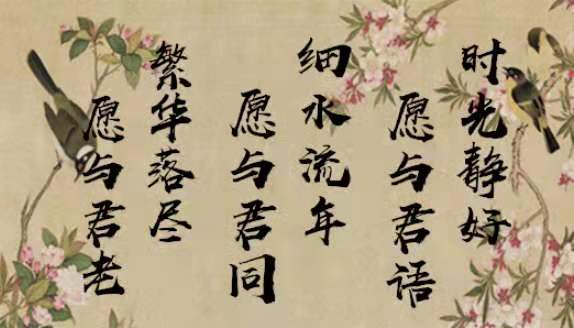 时光静好
愿与君语
细水流年
愿与君同
繁华落尽
愿与君老